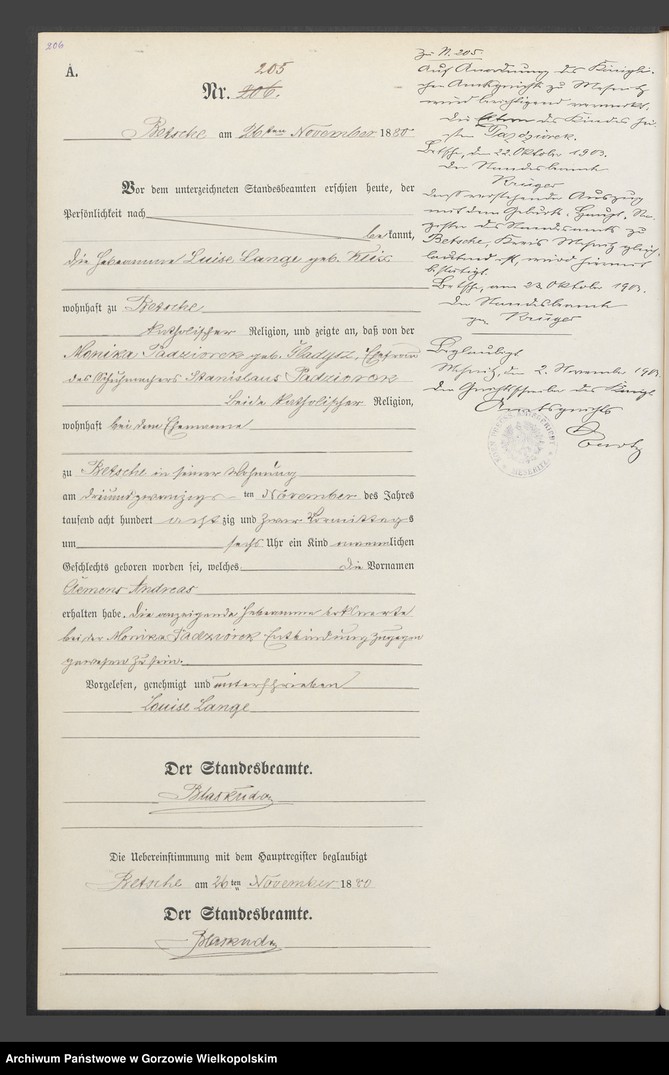 206
A.
205
Nr. 206.
Betsche am 26ten November 1880
Vor dem unterzeichneten Standesbeamten erschien heute, der
Persönlichkeit nach
bekannt,
die Hebeamme Luise Lange geb. 
wohnhaft zu Betsche
katholischer Religion, und zeigte an, daß von der
Monika Padziorek geb. Gladysz, Ehefrau
des Schuhmachers Stanislaus Padziorek
beide katholischer Religion,
wohnhaft bei dem Ehemanne
zu Betsche in seiner Wohnung
am dreiundzwanzigsten November des Jahres
tausend acht hundert achtzig und zwar Vormittags
um sechs Uhr ein Kind männlichen
Geschlechts geboren worden sei, welches die Vornamen
Clemens Andreas
erhalten habe. Die anzeigende Hebeamme erklärte
bei der Monika Padziorek Entbindung zugegen
gewesen zu sein.
Vorgelesen, genehmigt und unterschrieben
Louise Lange
Der Standesbeamte.
Blaskuda
Die Uebereinstimmung mit dem Hauptregister beglaubigt
Betsche am 26ten November 1880
Der Standesbeamte.
Blaskuda
Zu N. 205
Auf Anordnung des Königli-
chen Amtsgerichts zu Meseritz
wird berichtigend vermerkt:
Die Eltern des Kindes hei-
ßen Pazdziorek.
Betsche, den 22. Oktober 1903.
Der Standesbeamte
Krüger
Daß vorstehender Auszug
mit dem Geburts-Haupt-Re-
gister des Standesamts zu
Betsche, Kreis Meseritz gleich-
lautend ist, wird hiermit
bestätigt.
Betsche, am 23. Oktober 1903.
Der Standesbeamte
gez. Krüger
Beglaubigt
Meseritz, den 2. November 1903.
Der Gerichtsschreiber des Königl.
Amtsgerichts
MESERITZ
Archiwum Państwowe w Gorzowie Wielkopolskim